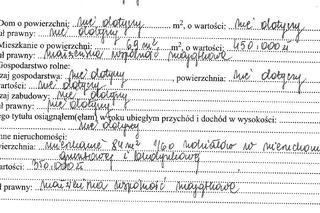 Dom o powierzchni: nie dotyczy m², o wartości: nie dotyczy
uł prawny: nie dotyczy
Mieszkanie o powierzchni: 69 m², o wartości: 450.000 zł
uł prawny: małżeńska wspólność majątkowa
Gospodarstwo rolne:
zaj gospodarstwa: nie dotyczy, powierzchnia: nie dotyczy
artości: nie dotyczy
zaj zabudowy: nie dotyczy
uł prawny: nie dotyczy
ego tytułu osiągnąłem(ęłam) w roku ubiegłym przychód i dochód w wysokości:
nie dotyczy
nne nieruchomości:
ierzchnia: mieszkanie 84 m² 9/60 udziałów w nieruchom
gruntowej i budynkowej
artości: 310.000 zł
uł prawny: małżeńska wspólność majątkowa